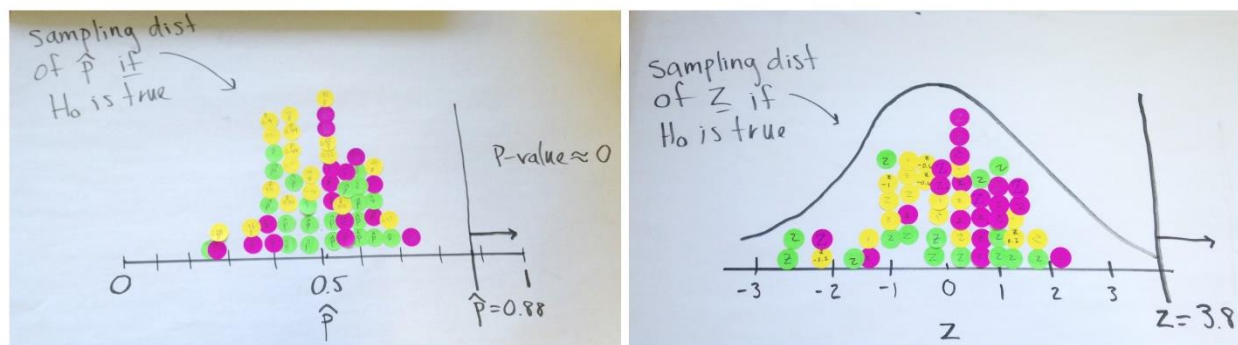 Sampling dist
of p̂ if
H₀ is true
P-value ≈ 0
0
0.5
1
p̂
p̂ = 0.88
Sampling dist
of Z if
H₀ is true
-3
-2
-1
0
1
2
3
Z
Z = 3.8